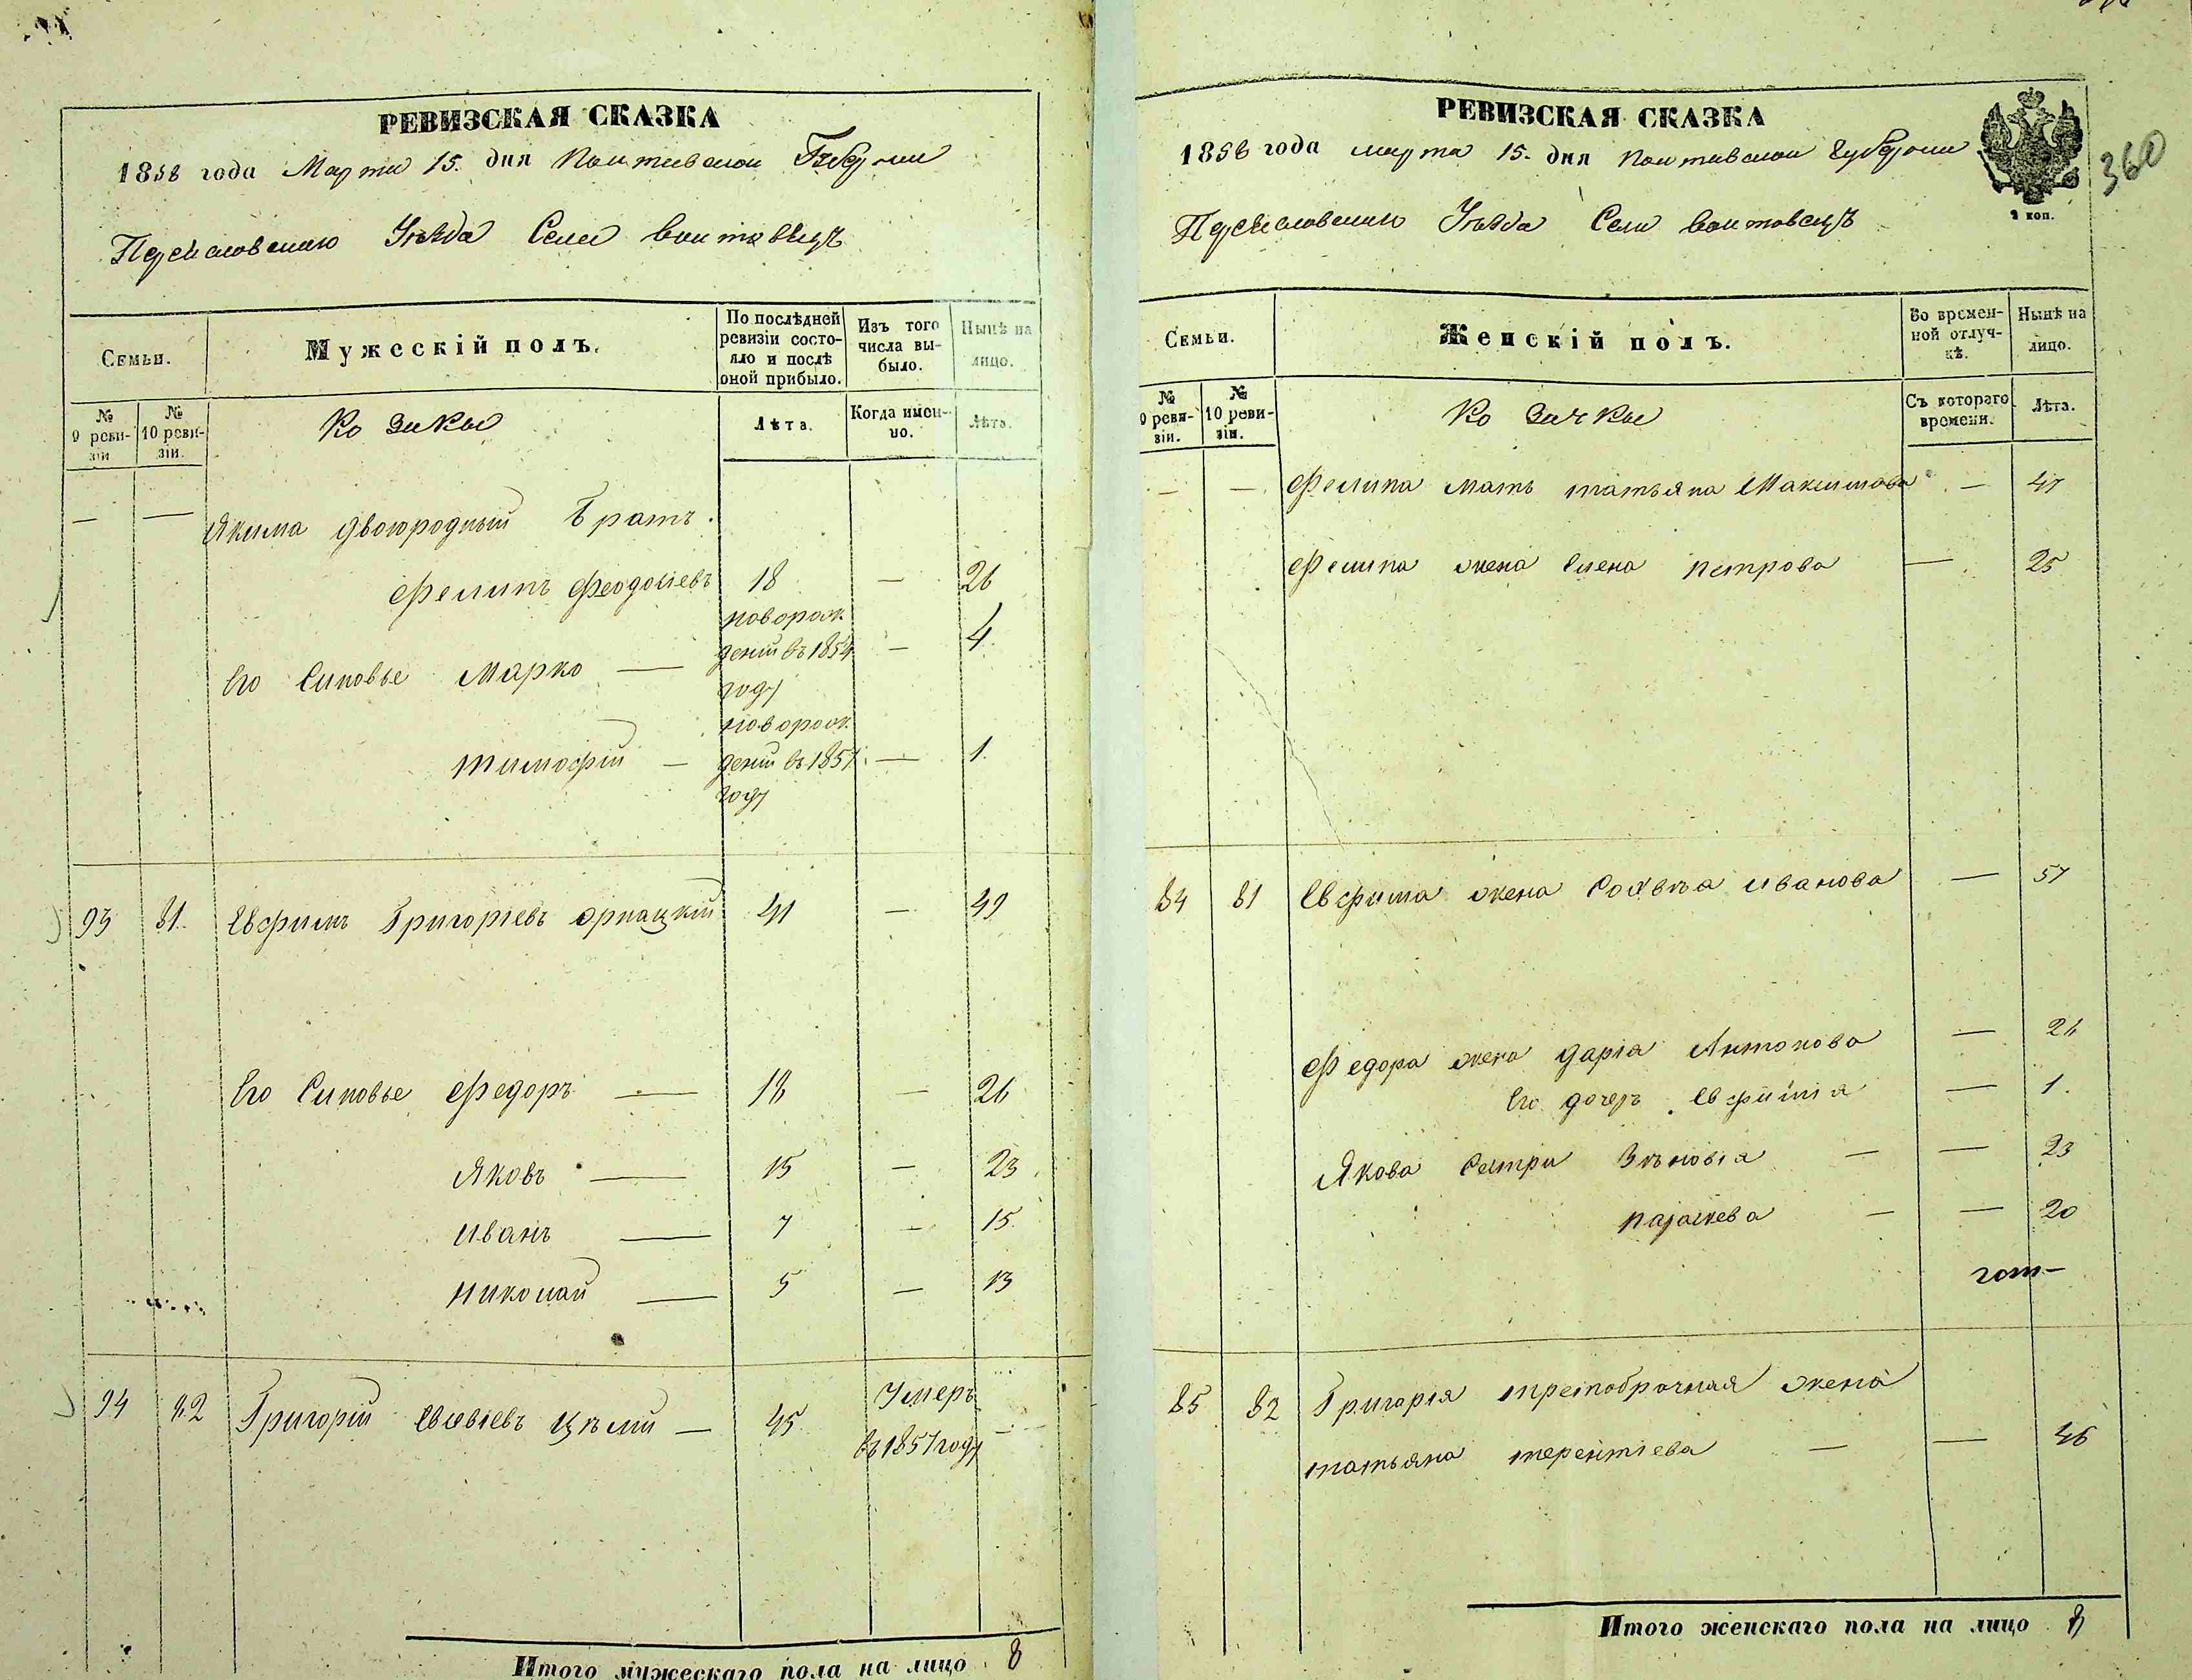 РЕВИЗСКАЯ СКАЗКА
1858 года Марта 15. дня Полтавской Губернии
Переяславскаго Уезда Села Войтовецъ
Семьи.
Мужескій полъ.
По послѣдней ревизіи состояло и послѣ оной прибыло.
Изъ того числа выбыло.
Нынѣ на лицо.
№ 9 ревизіи
№ 10 ревизіи.
Козаки
Лѣта.
Когда именно.
Лѣта.
— — Якима двоюродный Братъ.
Филипъ Феодосіевъ 18 — 26
Его Синовье Марко — новорожденій въ 1854 году — 4
Тимофій — новорожденій въ 1857 году — 1.
93 81. Евфимъ Григоріевъ 41 — 49
Его Синовье Федоръ — 18 — 26
Яковъ — 15 — 23
Иванъ — 7 — 15
Николай — 5 — 13
94 82 Григорій 45 Умеръ въ 1857 году —
Итого мужескаго пола на лицо 8
РЕВИЗСКАЯ СКАЗКА
1858 года марта 15. дня Полтавской Губернии
2 коп.
360
Переяславскаго Уезда Села Войтовецъ
Семьи.
Женскій полъ.
Во временной отлучкѣ.
Нынѣ на лицо.
№ 9 ревизіи.
№ 10 ревизіи.
Козачки
Съ котораго времени.
Лѣта.
— — Филипа мать татьяна Максимова — 47
Филипа жена Елена Петрова — 25
84 81 Евфима жена Софвѣа иванова — 57
Федора жена дарія Антонова — 26
Его дочеръ Евфимія — 1.
Якова Сестри Зѣновія — — 23
параскева — — 20
85 82 Григорія третобрачная жена
татьяна терентіева — — 46
Итого женскаго пола на лицо 8